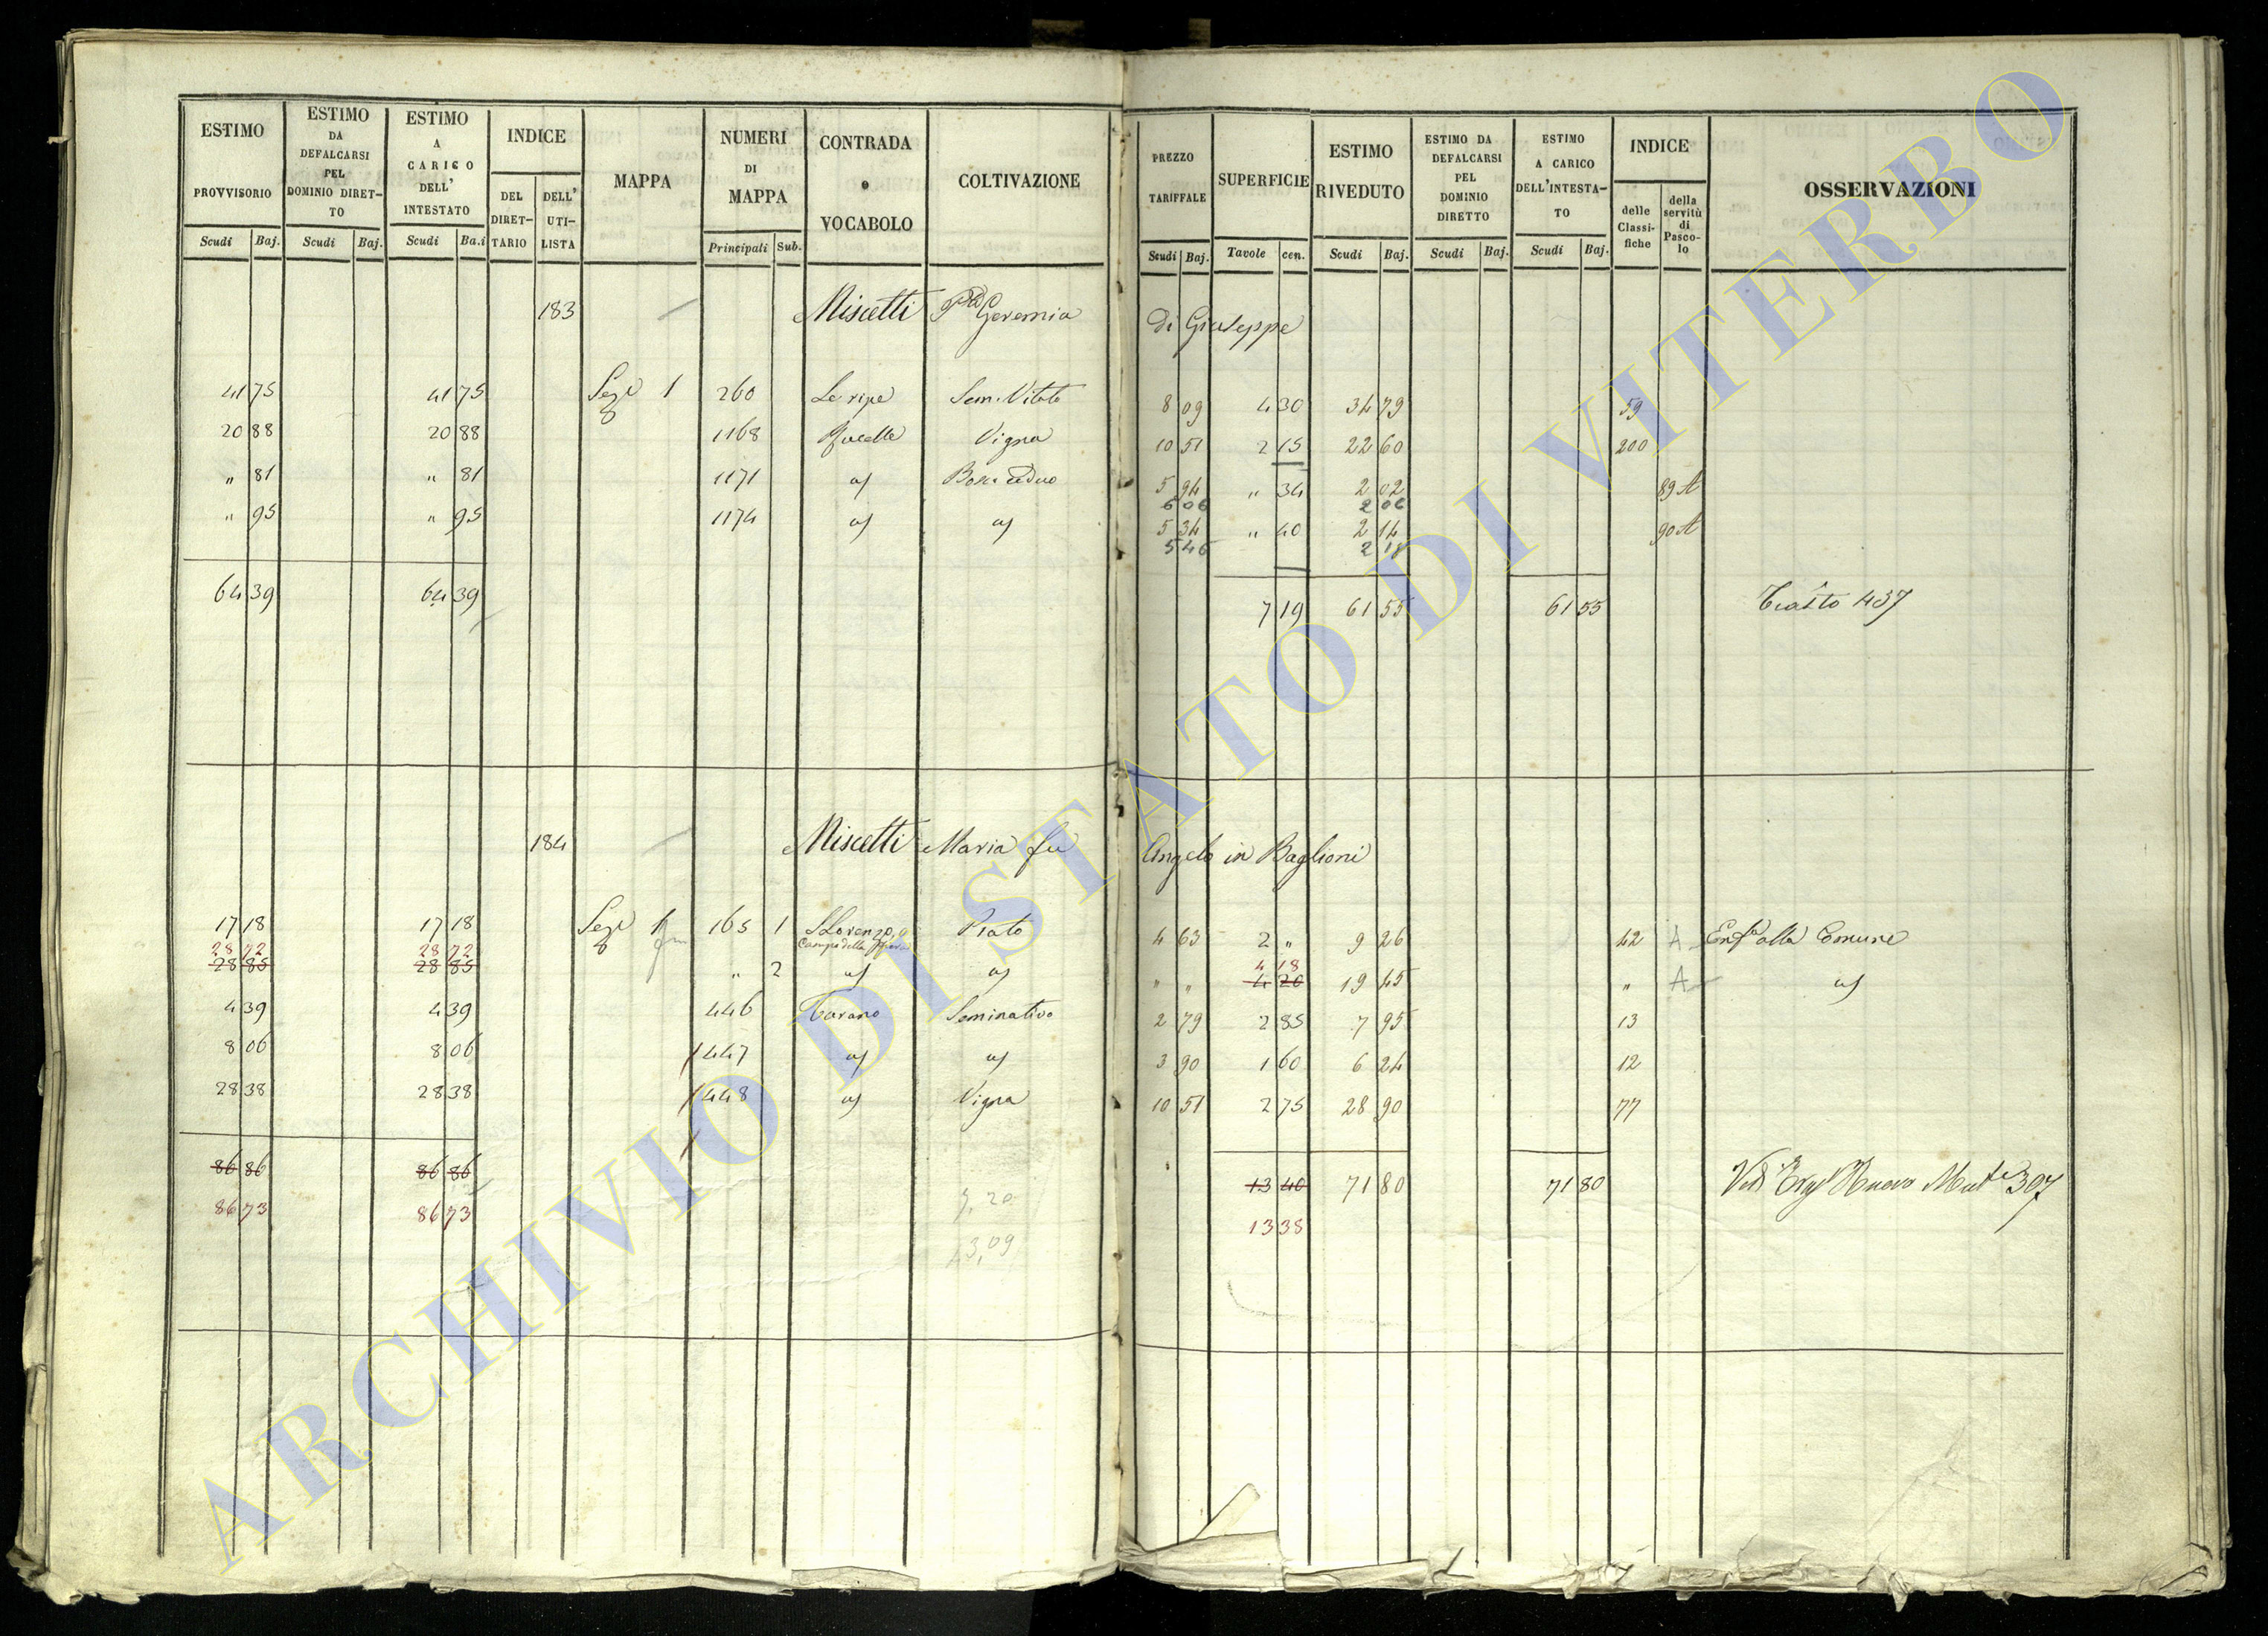 ESTIMO PROVVISORIO Scudi Baj.
ESTIMO DA DEFALCARSI PEL DOMINIO DIRET-TO Scudi Baj.
ESTIMO A CARICO DELL' INTESTATO Scudi Ba.i
INDICE DEL DIRET-TARIO DELL' UTI-LISTA
MAPPA
NUMERI DI MAPPA Principali Sub.
CONTRADA o VOCABOLO
COLTIVAZIONE
PREZZO TARIFFALE Scudi Baj.
SUPERFICIE Tavole cen.
ESTIMO RIVEDUTO Scudi Baj.
ESTIMO DA DEFALCARSI PEL DOMINIO DIRETTO Scudi Baj.
ESTIMO A CARICO DELL'INTESTA-TO Scudi Baj.
INDICE delle Classi-fiche della servitù di Pasco-lo
OSSERVAZIONI
183 Miscetti Geremia di Giuseppe
41 75 41 75 Sez.e 1 260 Le ripe Sem. Vitato 8 09 4 30 34 79 59
20 88 20 88 1168 Vigna 10 51 2 15 22 60 200
" 81 " 81 1171 Bosco Ceduo 5 94 " 34 2 02 89 A
6 06 2 06
" 95 " 95 1174 5 34 " 40 2 14 90 A
5 46 2 18
64 39 64 39 7 19 61 55 61 55 437
184 Miscetti Maria fu Angelo in Baglioni
17 18 17 18 Sez.e 1 165 1 S Lorenzo, o Prato 4 63 2 " 9 26 42 A Enf.a alla Comune
Campo della
28 72 28 72 4 18
28 85 28 85 " 2 " " 4 20 19 45 " A
4 39 4 39 446 Tavano Seminativo 2 79 2 85 7 95 13
8 06 8 06 447 3 90 1 60 6 24 12
28 38 28 38 448 Vigna 10 51 2 75 28 90 77
86 86 86 86 13 40 71 80 71 80 397
86 73 86 73 13 38
7,20
43,09
ARCHIVIO DI STATO DI VITERBO